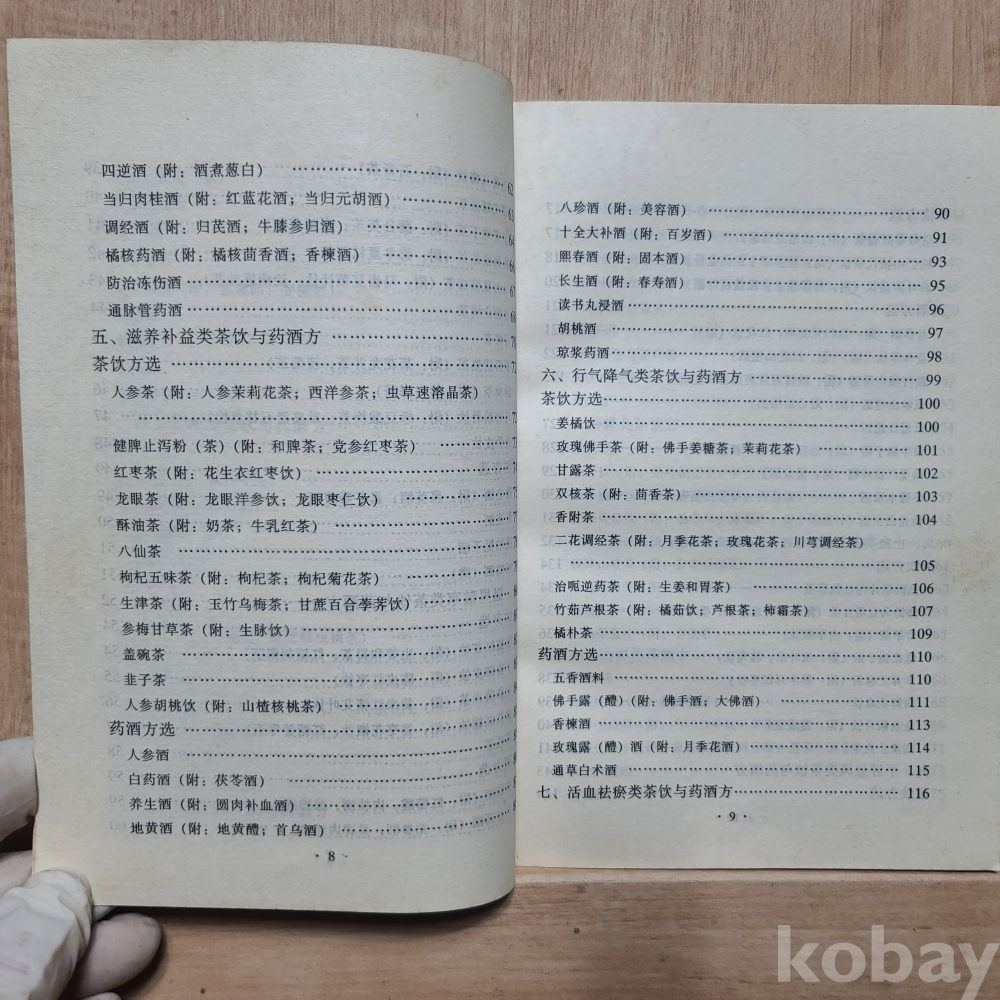 四逆酒（附：酒煮葱白）………………62
当归肉桂酒（附：红蓝花酒；当归元胡酒）………63
调经酒（附：归芪酒；牛膝参归酒）…………64
橘核药酒（附：橘核茴香酒；香楝酒）…………66
防治冻伤酒………………………67
通脉管药酒………………………68
五、滋养补益类茶饮与药酒方…………
茶饮方选………………………
人参茶（附：人参茉莉花茶；西洋参茶；虫草速溶晶茶）
………………………
健脾止泻粉（茶）（附：和脾茶；党参红枣茶）………
红枣茶（附：花生衣红枣饮）…………
龙眼茶（附：龙眼洋参饮；龙眼枣仁饮）…………
酥油茶（附：奶茶；牛乳红茶）…………
八仙茶………………………
枸杞五味茶（附：枸杞茶；枸杞菊花茶）…………
生津茶（附：玉竹乌梅茶；甘蔗百合荸荠饮）………
参梅甘草茶（附：生脉饮）…………
盖碗茶………………………
韭子茶………………………
人参胡桃饮（附：山楂核桃茶）…………
药酒方选………………………
人参酒………………………
白药酒（附：茯苓酒）…………
养生酒（附：圆肉补血酒）…………
地黄酒（附：地黄醴；首乌酒）…………
·8·
八珍酒（附：美容酒）………………90
十全大补酒（附：百岁酒）……………91
熙春酒（附：固本酒）………………93
长生酒（附：春寿酒）………………95
读书丸浸酒………………………96
胡桃酒………………………97
琼浆药酒………………………98
六、行气降气类茶饮与药酒方…………99
茶饮方选………………………100
姜橘饮………………………100
玫瑰佛手茶（附：佛手姜糖茶；茉莉花茶）………101
甘露茶………………………102
双核茶（附：茴香茶）………………103
香附茶………………………104
二花调经茶（附：月季花茶；玫瑰花茶；川芎调经茶）
………………………105
治呃逆药茶（附：生姜和胃茶）…………106
竹茹芦根茶（附：橘茹饮；芦根茶；柿霜茶）………107
橘朴茶………………………109
药酒方选………………………110
五香酒料………………………110
佛手露（醴）（附：佛手酒；大佛酒）…………111
香楝酒………………………113
玫瑰露（醴）酒（附：月季花酒）…………114
通草白术酒………………………115
七、活血祛瘀类茶饮与药酒方…………116
·9·
kobay